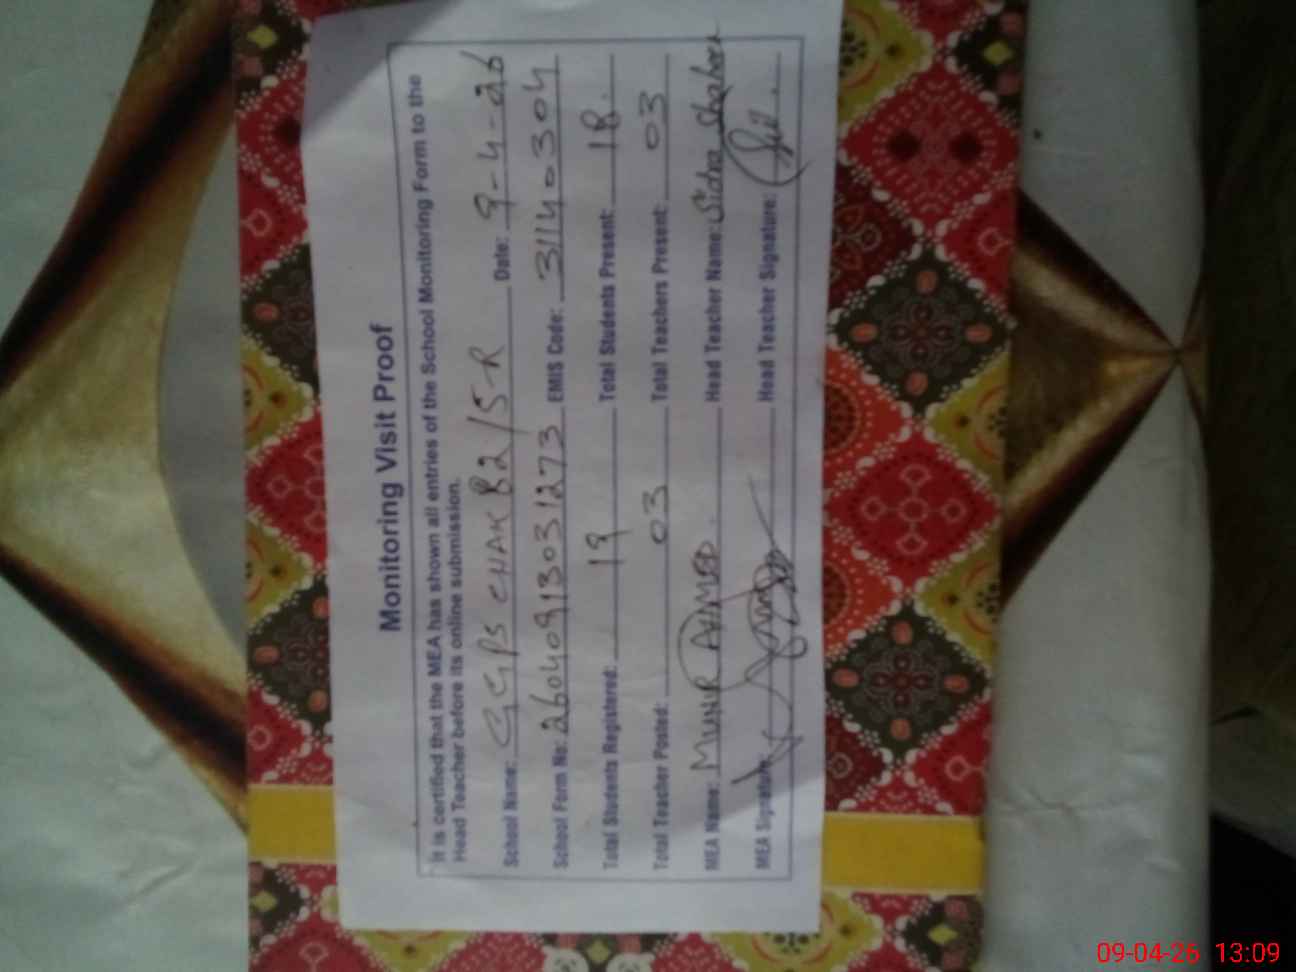 Monitoring Visit Proof
It is certified that the MEA has shown all entries of the School Monitoring Form to the
Head Teacher before its online submission.
School Name: GGPS CHAK 82/5-R Date: 9-4-26
School Form No: 26040913031273 EMIS Code: 31140304
Total Students Registered: 19 Total Students Present: 18.
Total Teacher Posted: 03 Total Teachers Present: 03
MEA Name: MUNIR AHMED. Head Teacher Name: Sidra Shaheen
MEA Signature: Head Teacher Signature:
09-04-26 13:09